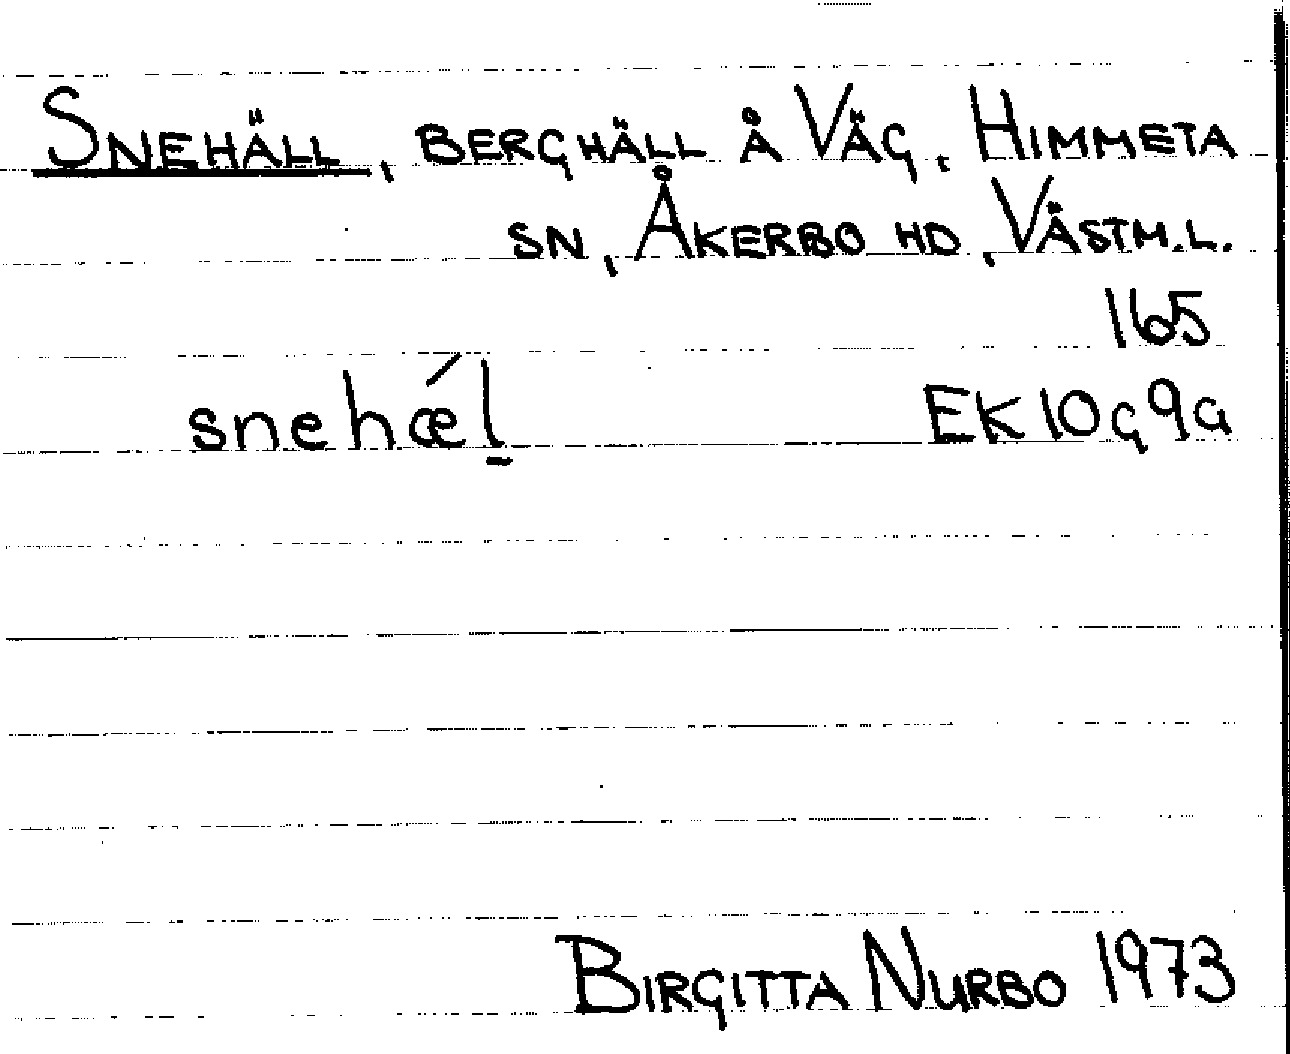 SNEHÄLL, BERGHÄLL Å VÄG, HIMMETA
SN, ÅKERBO HD, VÄSTM.L.
165
snehǽl̲ EK10g9a
BIRGITTA NURBO 1973